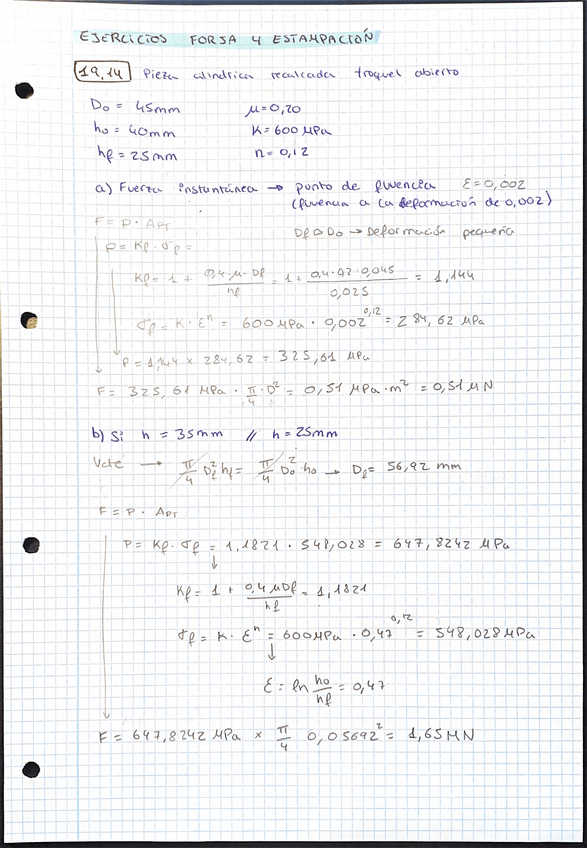 EJERCICIOS FORJA Y ESTAMPACIÓN
19.14 Pieza cilindrica recalcada troquel abierto
D₀ = 45mm μ = 0,20
h₀ = 40mm K = 600 MPa
hf = 25mm n = 0,12
a) Fuerza instantánea → punto de fluencia ε = 0,002
(fluencia a la deformación de 0,002)
F = P · APT
Df ≈ D₀ → Deformación pequeña
P = Kf · σf =
Kf = 1 + 0,4·μ·Df / hf = 1 + 0,4·0,2·0,045 / 0,025 = 1,144
σf = K · εⁿ = 600 MPa · 0,002^0,12 = 284,62 MPa
P = 1,144 x 284,62 = 325,61 MPa
F = 325,61 MPa · π/4 · D² = 0,51 MPa·m² = 0,51 MN
b) Si h = 35mm // h = 25mm
Vcte → π/4 Df² hf = π/4 D₀² · h₀ → Df = 56,92 mm
F = P · APT
P = Kf · σf = 1,1821 · 548,028 = 647,8242 MPa
Kf = 1 + 0,4 μ Df / hf = 1,1821
σf = K · εⁿ = 600 MPa · 0,47^0,12 = 548,028 MPa
ε = ln h₀/hf = 0,47
F = 647,8242 MPa x π/4 0,05692² = 1,65 MN